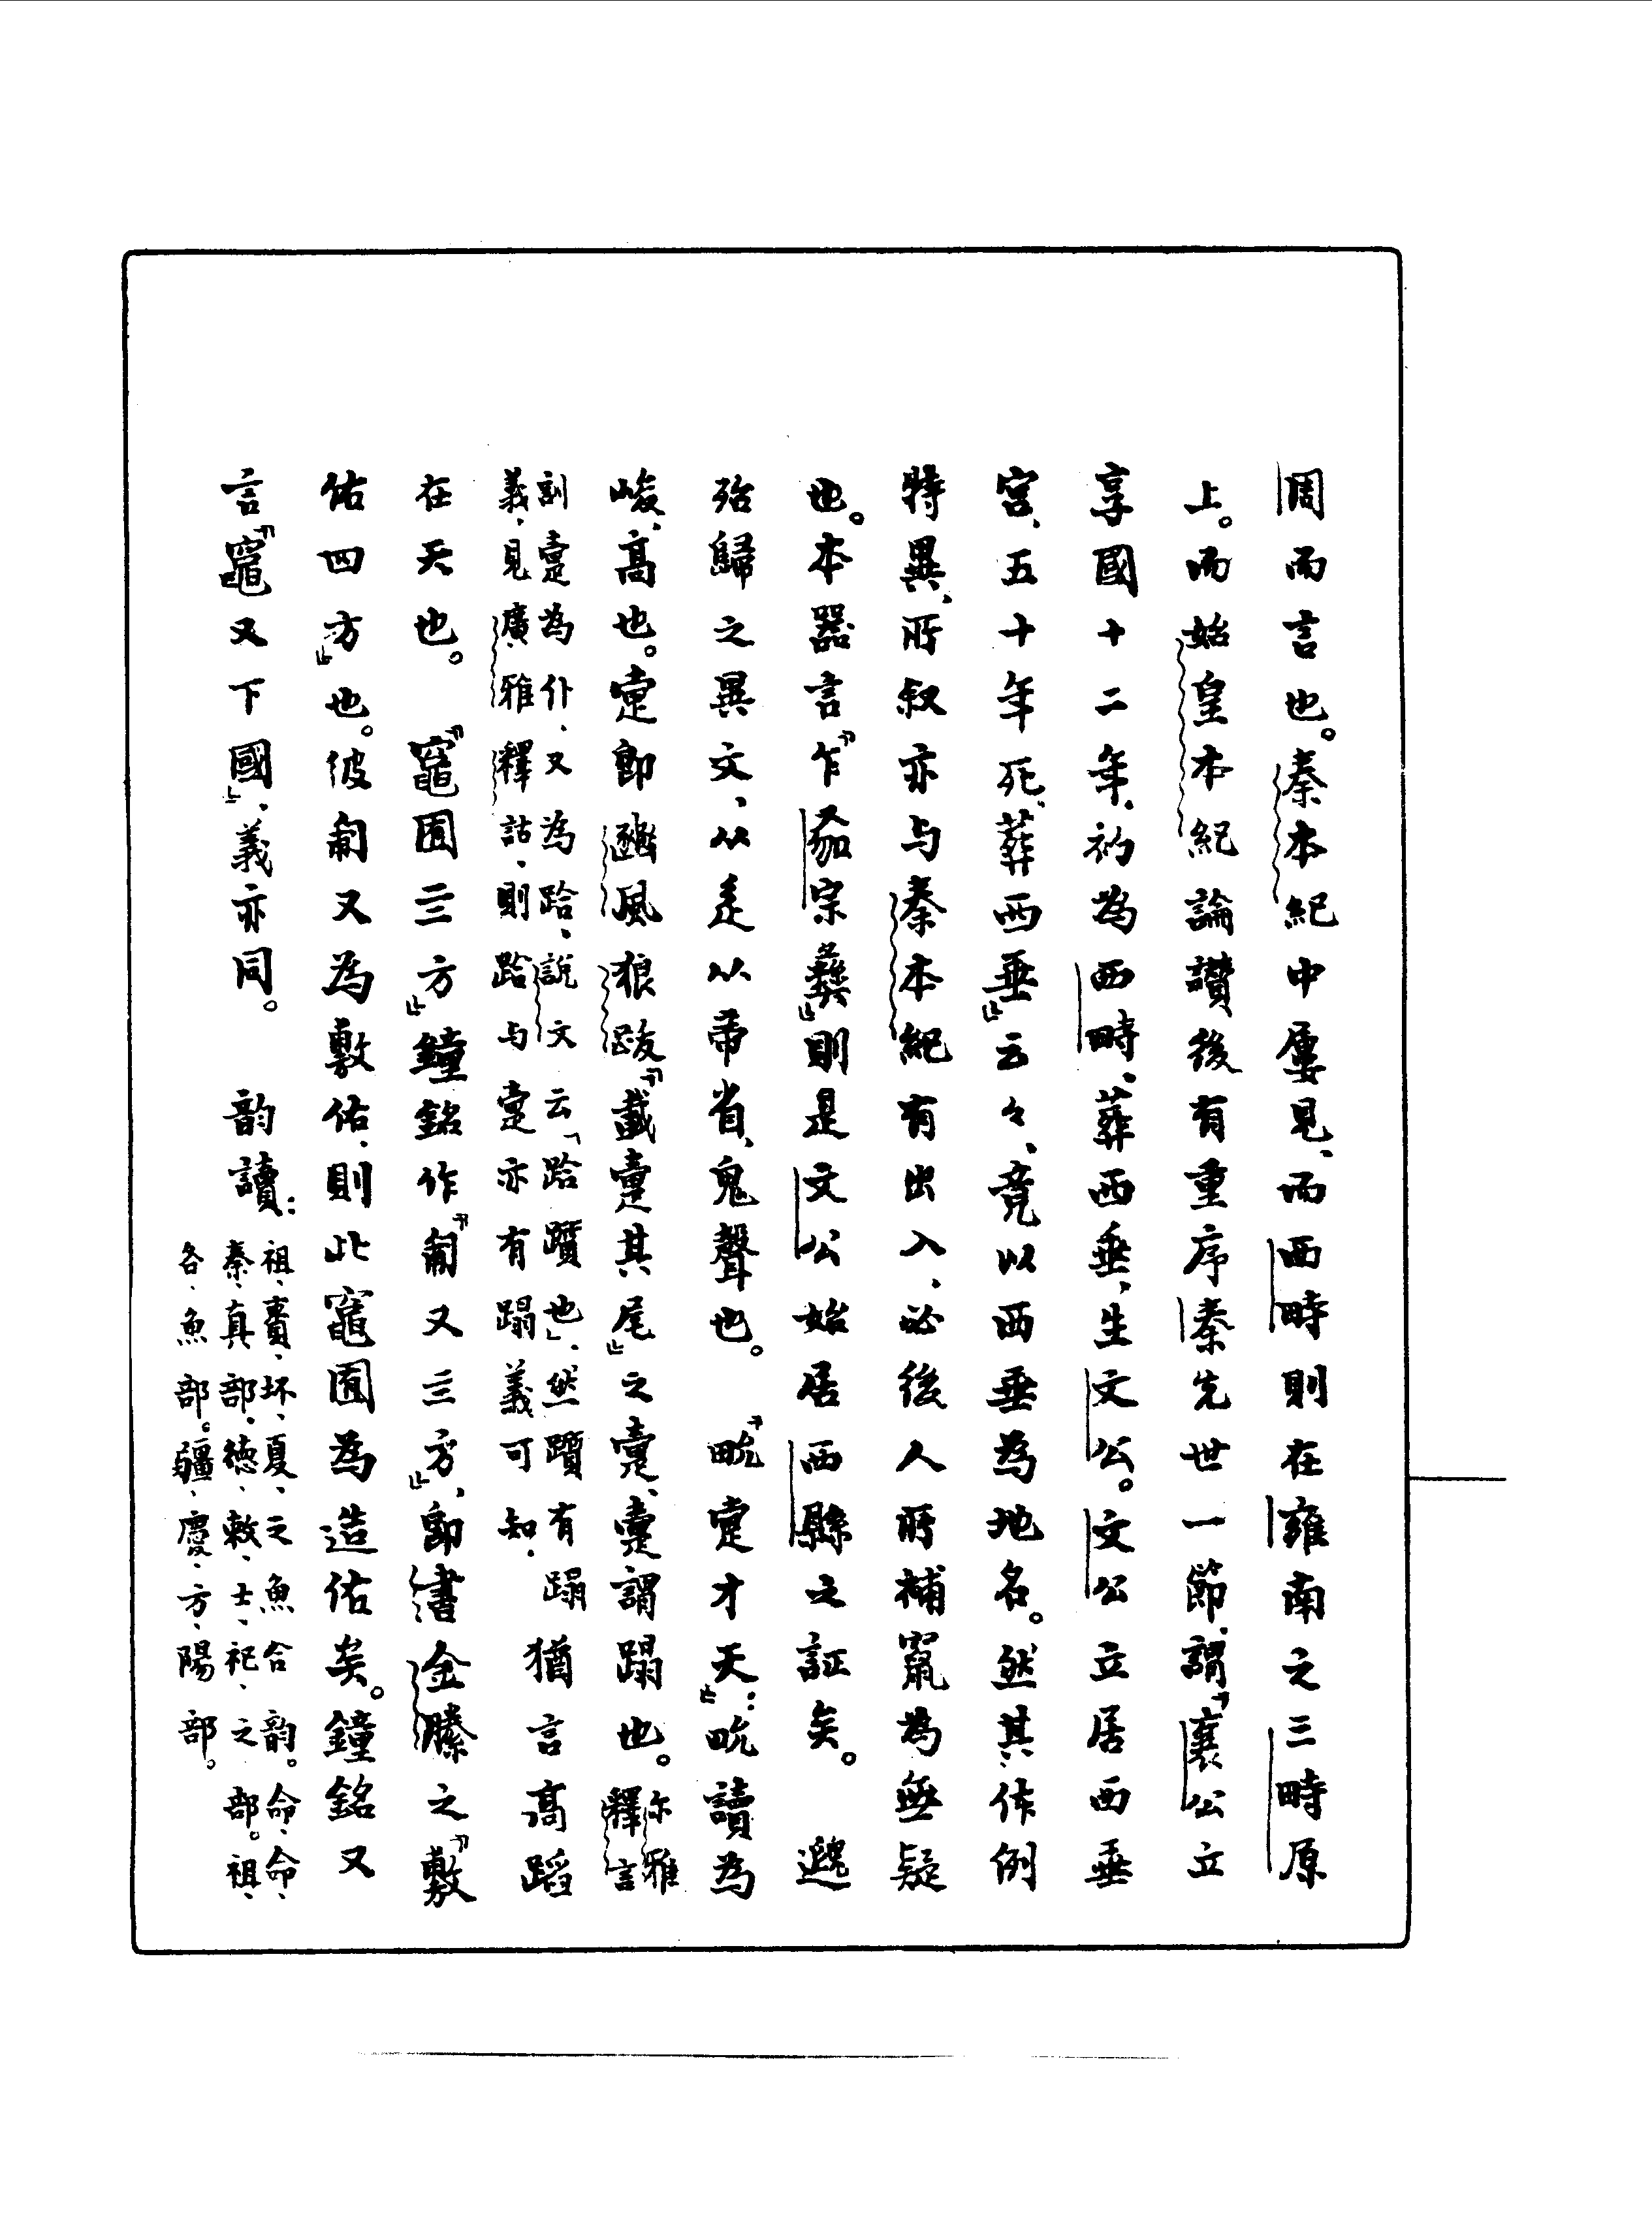 周而言也。秦本紀中屢見、而西畤則在雍南之三畤原
上。而始皇本紀論讚後有重序秦先世一節、謂『襄公立
享國十二年、初為西畤、葬西垂、生文公。文公立居西垂
宮、五十年死、葬西垂』云々、竟以西垂為地名。然其作例
特異、所叙亦与秦本紀有出入、必後人所補竄為無疑
也。本器言『乍㝬宗彝』則是文公始居西縣之証矣。　邈
殆歸之異文、从辵从帚省、鬼聲也。　『畯疐才天』：畯讀為
峻、高也。疐即豳風狼跋『載疐其尾』之疐、疐謂蹋也。尔雅釋言
訓疐為仆、又為跲、說文云「跲躓也」、然躓有蹋
義、見廣雅釋詁、則跲与疐亦有蹋義可知．
猶言高蹈
在天也。　『竈囿三方』鐘銘作『匍又三方』、即書金縢之『敷
佑四方』也。彼匍又為敷佑、則此竈囿為造佑矣。鐘銘又
言『竈又下國』、義亦同。　韵讀：
祖、賚、坏、夏、之魚合韵。命、命、
秦、真部、德、敕、士、祀、之部。祖、
各、魚部。疆、慶、方、陽部。